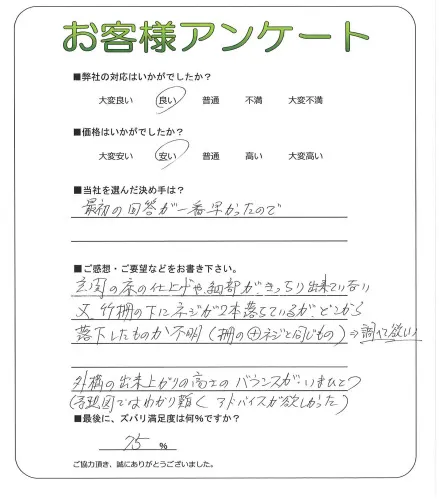 お客様アンケート
■弊社の対応はいかがでしたか？
大変良い 良い 普通 不満 大変不満
■価格はいかがでしたか？
大変安い 安い 普通 高い 大変高い
■当社を選んだ決め手は？
最初の回答が一番早かったので
■ご感想・ご要望などをお書き下さい。
玄関の床の仕上げや、細部が、きっちり出来ていない
又、竹柵の下にネジが2本落ちているが、どこから
落下したものか不明（柵の⊕ネジと同じもの）⇒調べて欲しい
外構の出来上がりの高さのバランスが、いまひとつ
図ではわかり難く アドバイスが欲しかった）
■最後に、ズバリ満足度は何%ですか？
75 %
ご協力頂き、誠にありがとうございました。